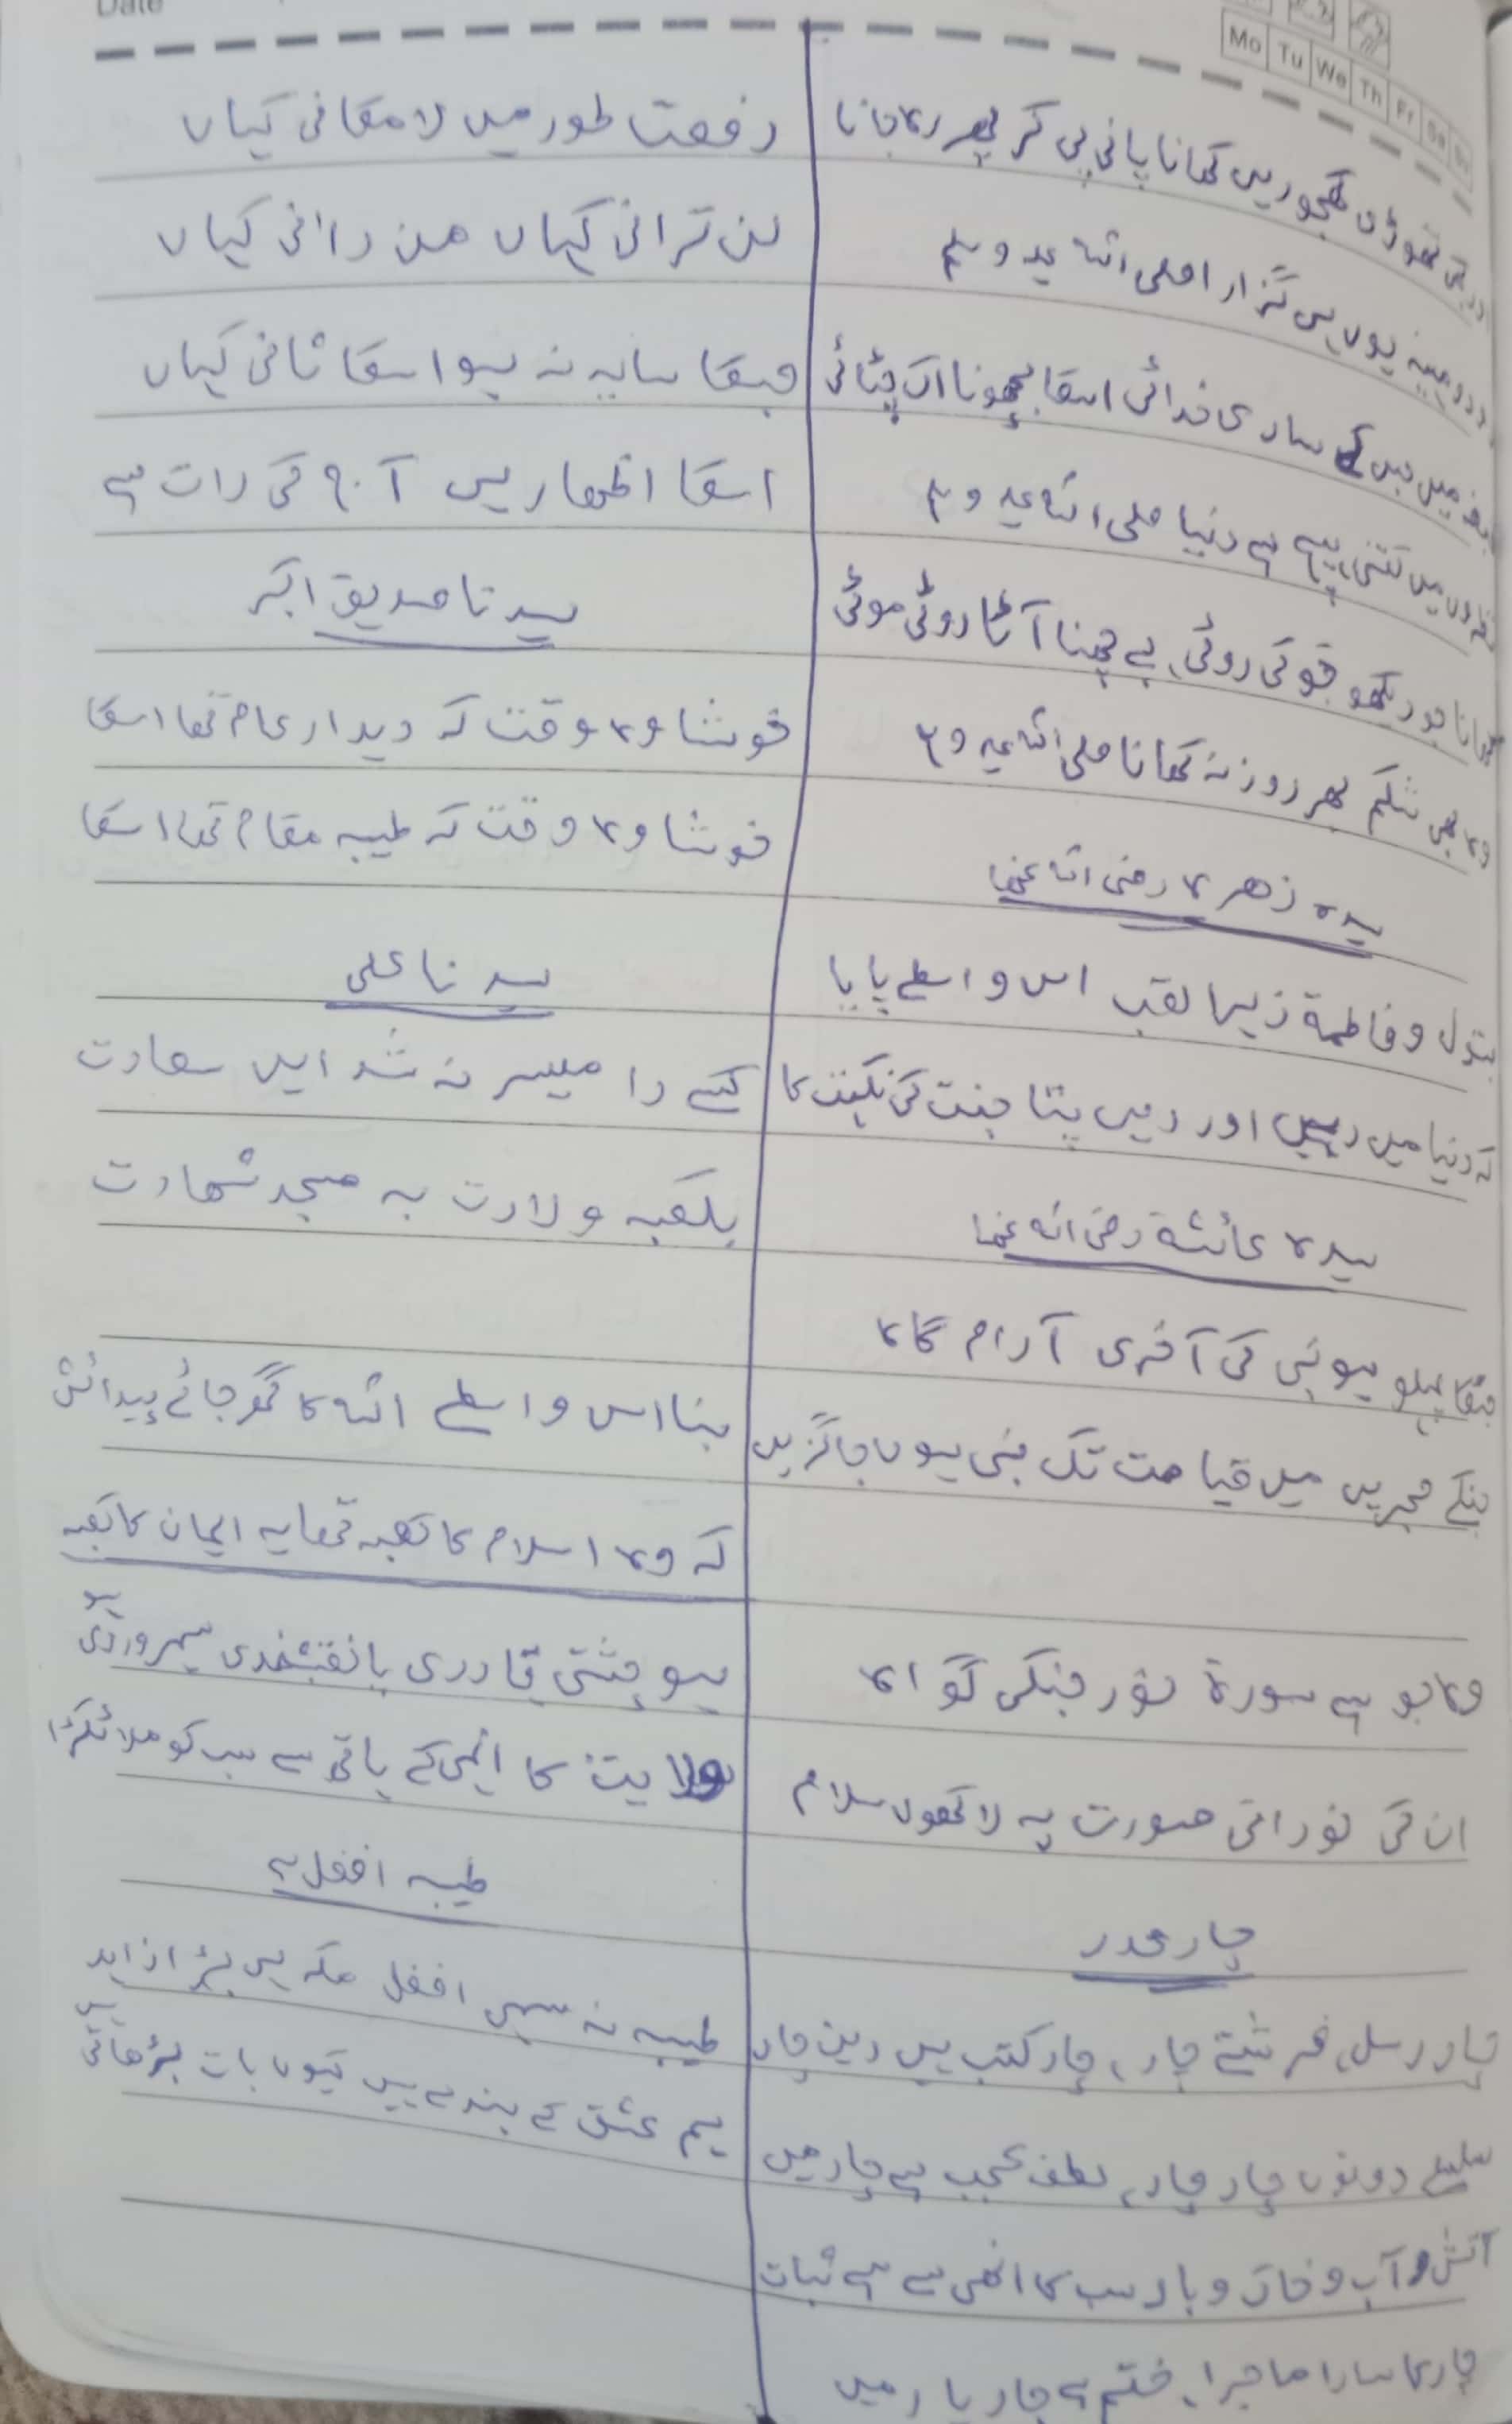 Date
Mo Tu We Th Fr Sa Su
تھوڑی کھجوریں کھانا پانی پی کر پھر رہ جانا
دو دو مہینہ یوں ہی گزارا صلی اللہ علیہ وسلم
میں جس کے ساری خدائی اسکا بچھونا اک چٹائی
نظروں میں کتنی ہیچ ہے دنیا صلی اللہ علیہ وسلم
کھانا جو دیکھو جو کی روٹی، بے چھنا آٹا روٹی موٹی
وہ بھی شکم بھر روز نہ کھانا صلی اللہ علیہ وسلم
سیدہ زھرہ رضی اللہ عنہا
بتول و فاطمۃ زہرا لقب اس واسطے پایا
کہ دنیا میں رہیں اور دیں پتا جنت کی نگہت کا
سیدہ عائشۃ رضی اللہ عنہا
جنکا پہلو ہو نبی کی آخری آرام گاہ
جنکے حجریں میں قیامت تک نبی ہوں جاگزیں
وہ جو ہے سورۃ نور جنکی گواہ
ان کی نورانی صورت پہ لاکھوں سلام
چار عدد
چار رسل، فرشتے چار، چار کتب ہیں دین چار
سلسلے دونوں چار چار، لطف عجب ہے چار میں
آتش و آب و خاک و باد سب کا انھی سے ہے ثبات
چار کا سارا ماجرا، ختم ہے چار یار میں
رفعت طور میں لا مکانی کہاں
لن ترانی کہاں من رانی کہاں
جسکا سایہ نہ ہو اسکا ثانی کہاں
اسکا اظھار ہی آج کی رات ہے
سیدنا صدیق اکبر
خوشا وہ وقت کہ دیدار عام تھا اسکا
خوشا وہ وقت کہ طیبہ مقام تھا اسکا
سیدنا علی
کسے را میسر نہ شد ایں سعادت
بکعبہ ولادت بہ مسجد شھادت
بنا اس واسطے اللہ کا گھر جائے پیدائش
کہ وہ اسلام کا کعبہ تھا یہ ایمان کا کعبہ
ہو چشتی قادری یا نقشبندی سہروردی ہو
ولایت کا انھی کے ہاتھ سے سب کو ملا ٹکڑا
طیبہ افضل ہے
طیبہ نہ سہی افضل مکہ ہی بڑا زاہد
ہم عشق کے بندے ہیں کیوں بات بڑھائی ہے